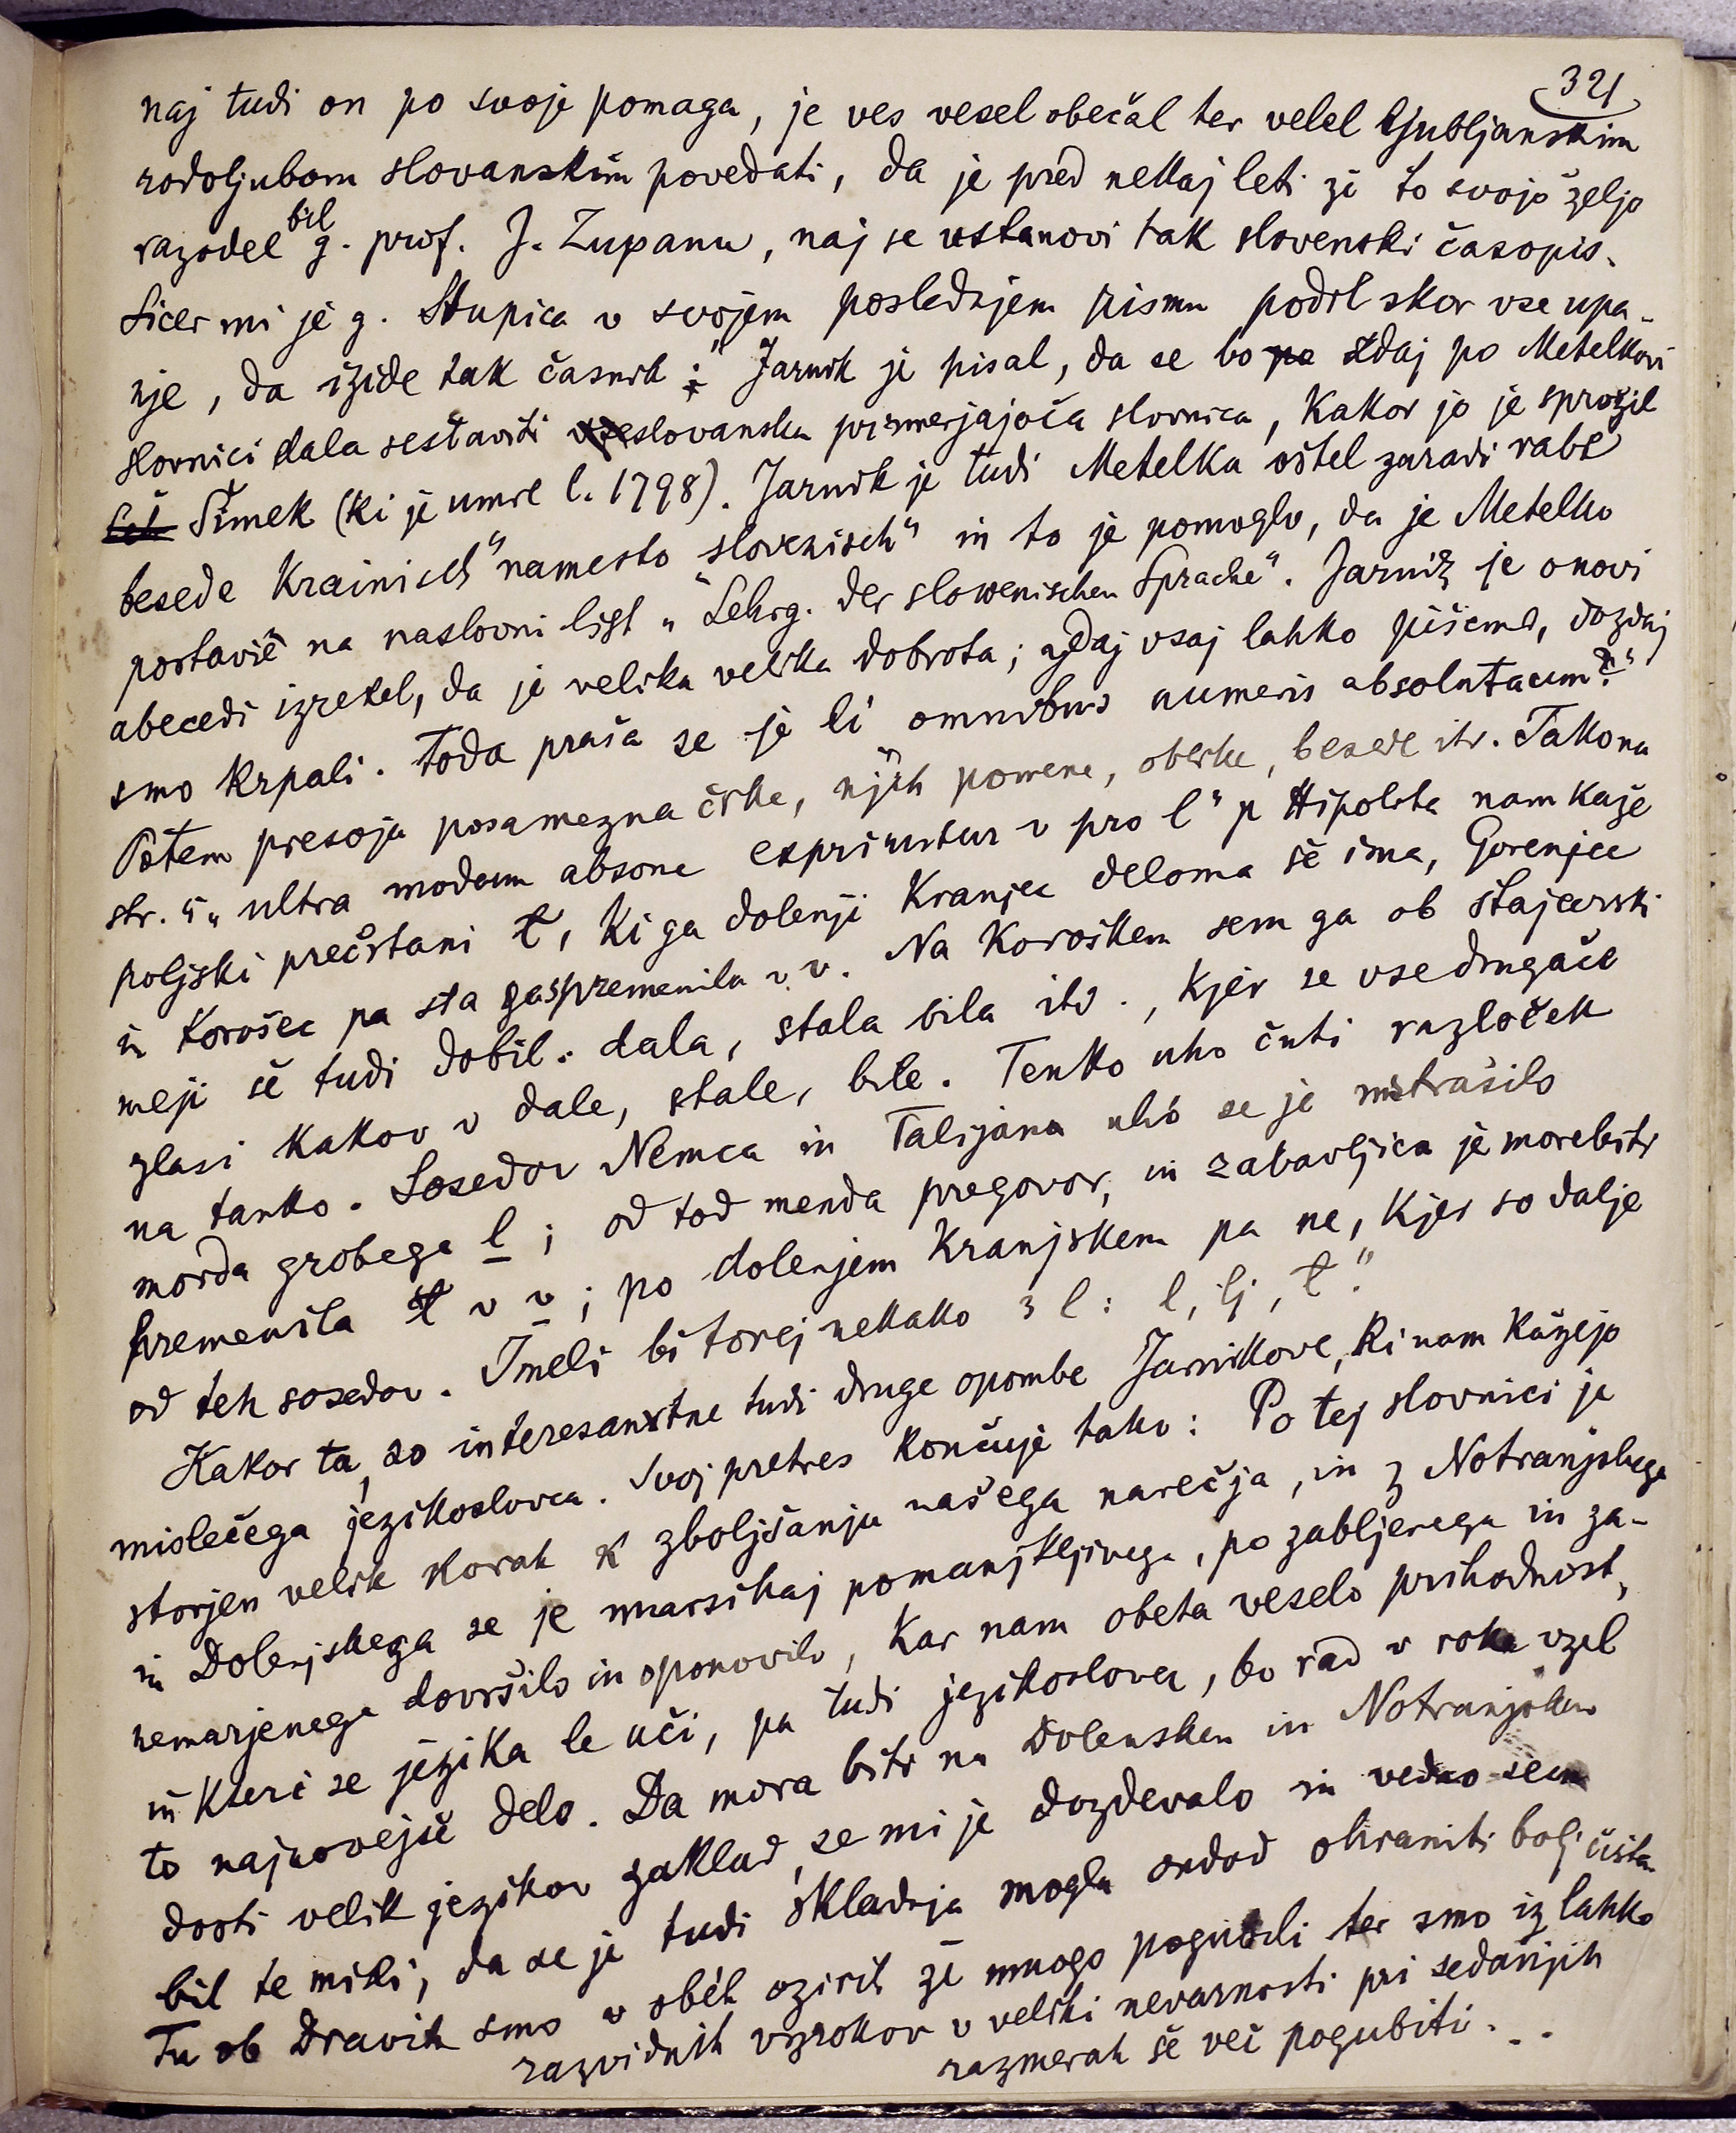 321
naj tudi on po svoje pomaga, je ves vesel obečal ter velel ljubljanskim
rodoljubom slovanskim povedati, da je pred nekaj leti že to svojo željo
razodel bil g. prof. J. Zupanu, naj se ustanovi tak slovenski časopis.
Sicer mi je g. Stupica v svojem poslednjem pismu podrl skor vse upa-
nje, da izide tak časnik: " Jarnik je pisal, da se bo pa zdaj po Metelkovi
slovnici dala sestaviti vseslovanska primerjajoča slovnica, kakor jo je sprožil
Šimek (ki je umrl l. 1798). Jarnik je tudi Metelka oštel zaradi rabe
besede Krainisch" namesto slovenisch" in to je pomoglo, da je Metelko
postavil na naslovni list „Lehrg. der slowenischen Sprache". Jarnik je o novi
abecedi izrekel, da je velika velika dobrota; zdaj vsaj lahko pišemo, dozdaj
smo krpali. Toda praša se je li omnibus numeris absolutacum?"
Potem presoja posamezna črke, njih pomene, oblike, besede itd. Tako na
str. 5 „ultra modum absone exprimitur v pro l" p Hipolita nam kaže
poljski prečrtani ł, ki ga dolenji Kranjec deloma še ima, Gorenjec
in Korošec pa sta ga spremenila v v. Na Koroškem sem ga ob štajerski
meji še tudi dobil: dala, stala bila itd., kjer se vse drugače
glasi kakor v dale, stale, bile. Tenko uho čuti razloček
na tanko. Sosedov Nemca in Talijana uho se je vstrašilo
morda grobega l; od tod menda pregovor, in zabavljica je morebiti
premenila ł v v; po dolenjem Kranjskem pa ne, kjer so dalje
od teh sosedov. Imeli bi torej nekako 3 l: l, lj, ł."
Kakor ta, so interesantne tudi druge opombe Jarnikove, ki nam kažejo
mislečega jezikoslovca. Svoj pretres končuje tako: Po tej slovnici je
storjen velik korak k zboljšanju našega narečja, in z Notranjskega
in Dolenjskega se je marsikaj pomanjkljivega, pozabljenega in za-
nemarjenega dovršilo in oponovilo, kar nam obeta veselo prihodnost,
in kteri se jezika le uči, pa tudi jezikoslovec, bo rad v roke vzel
to najnovejše delo. Da mora biti na Dolenskem in Notranjskem
dosti velik jezikov zaklad, se mi je dozdevalo in vedno sem
bil te misli, da se je tudi skladnja mogla ondod ohraniti bolj čista.
Tu ob Dravih smo v obéh ozirih že mnogo pogubili ter smo iz lahko
razvidnih vzrokov v veliki nevarnosti pri sedanjih
razmerah še več pogubiti...